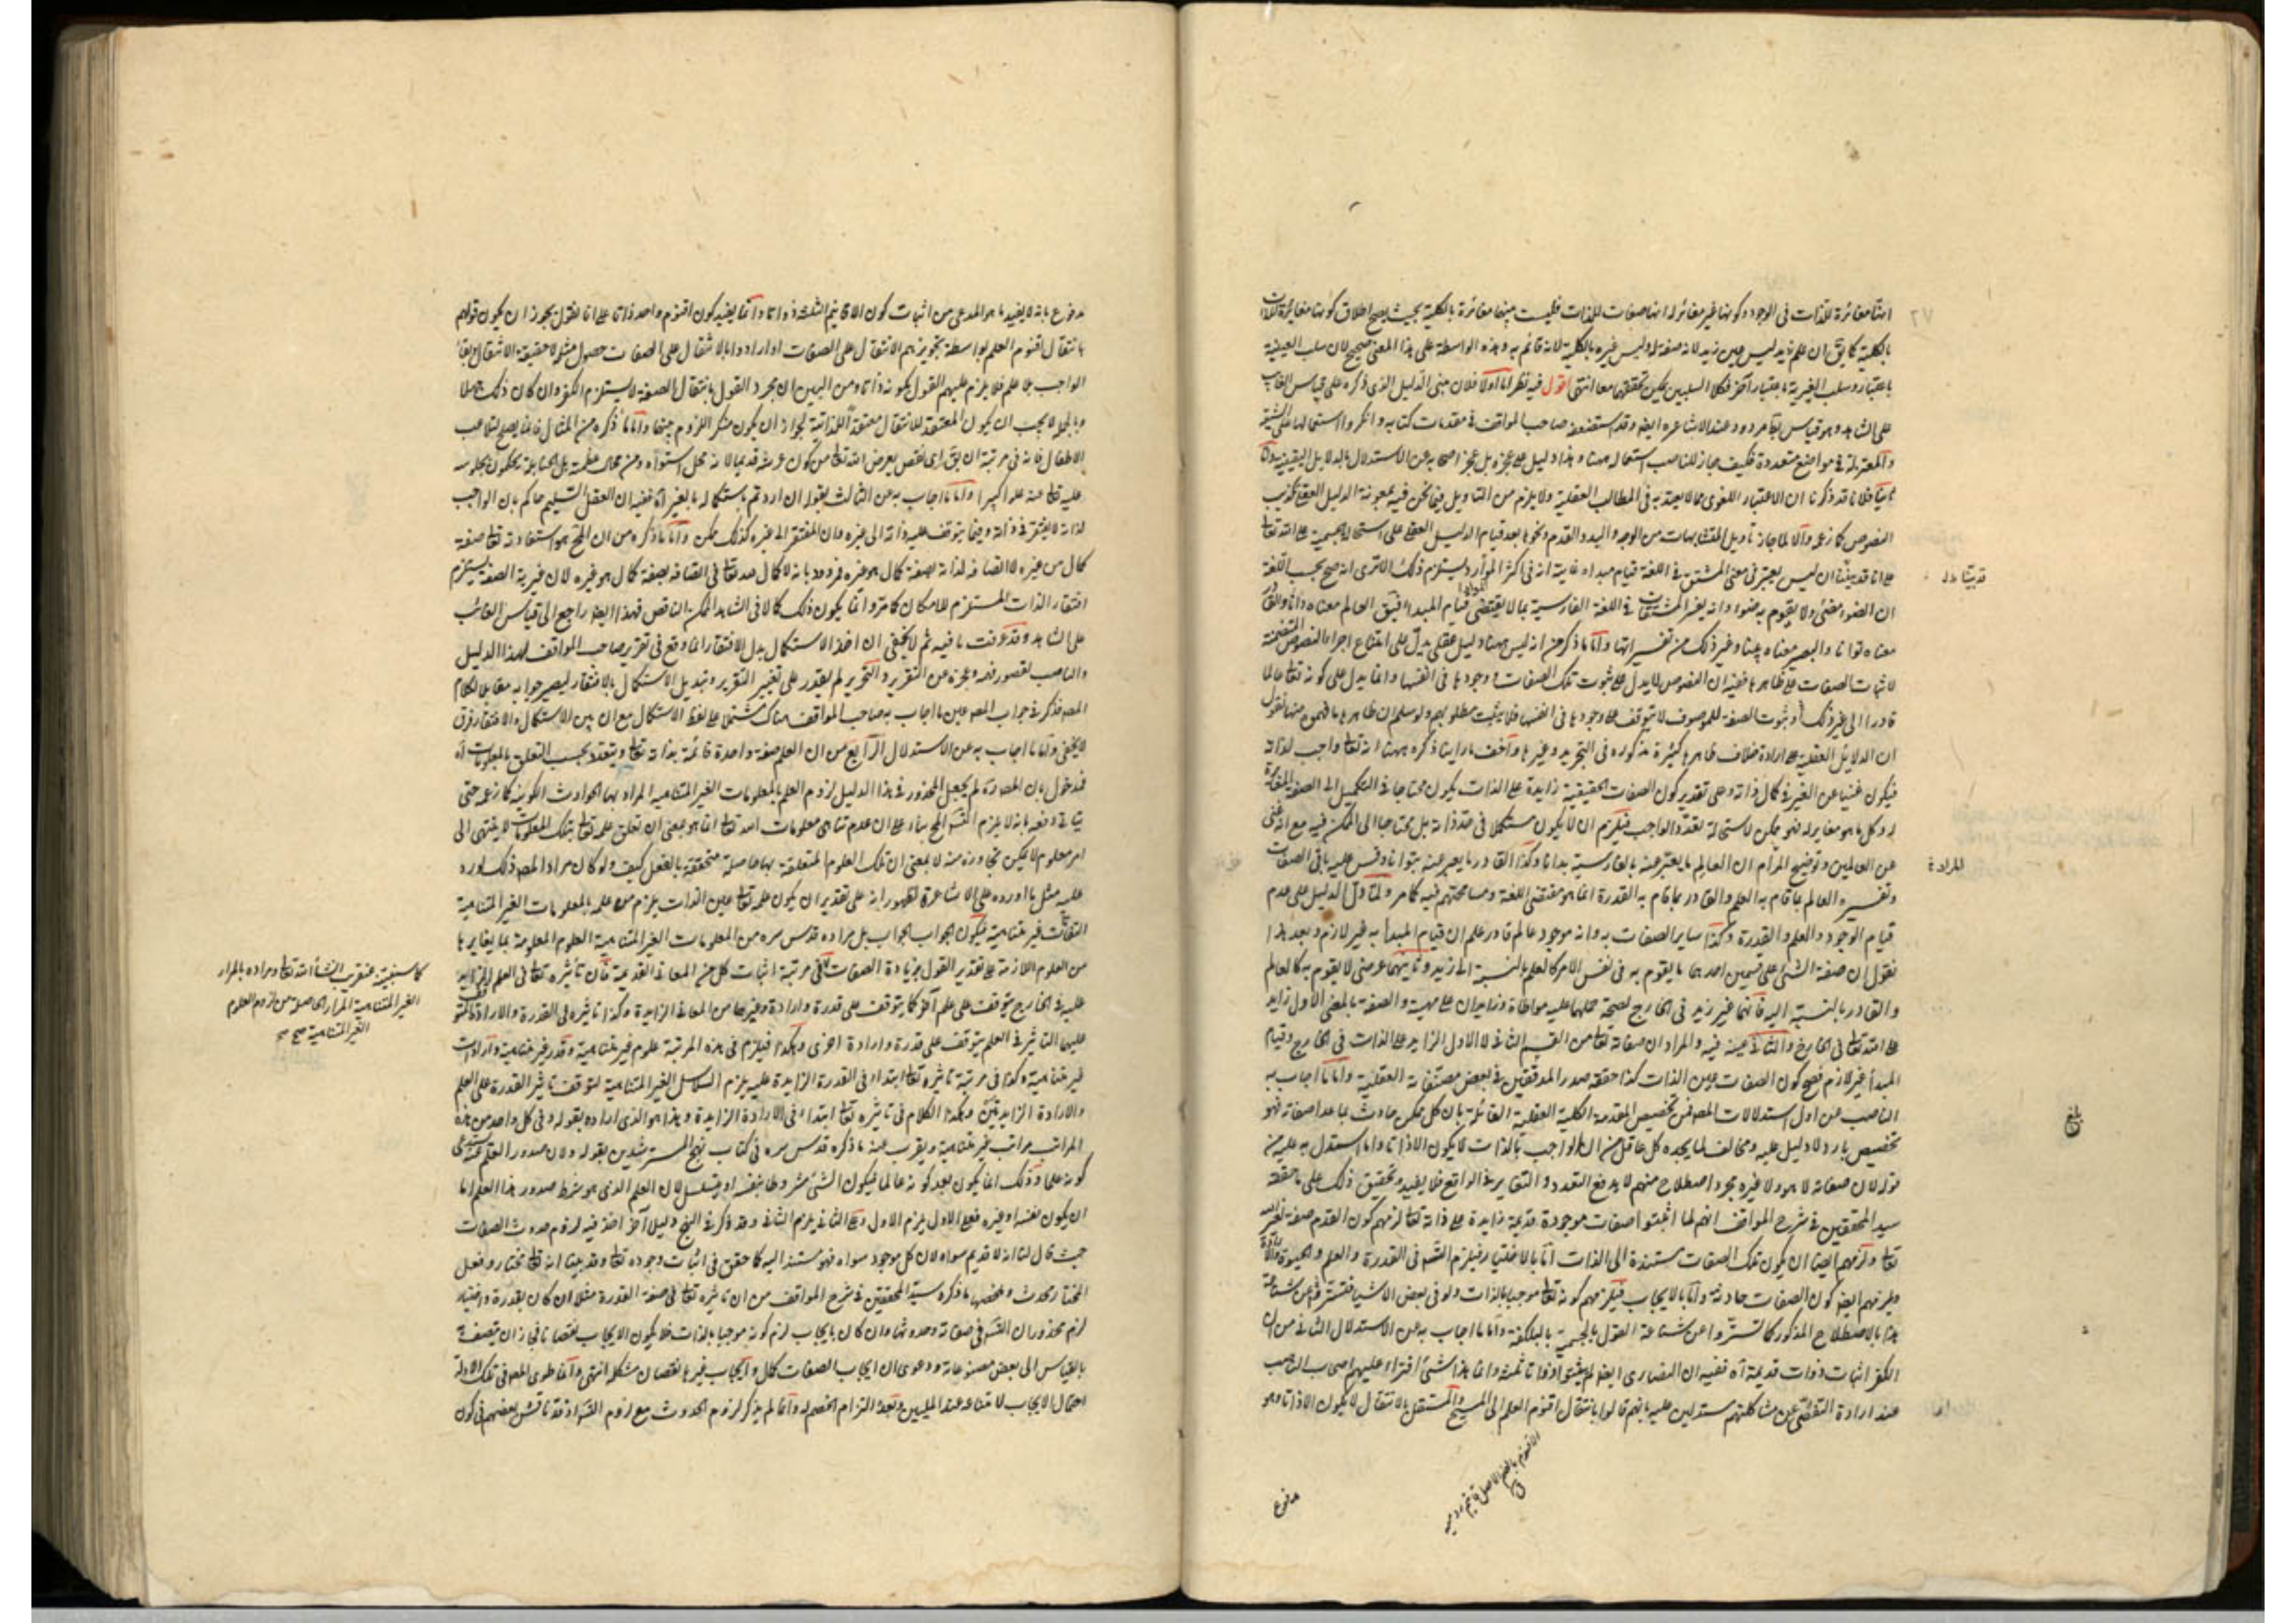 امّا مغائرة للذات فى الوجود وكونها غير مغائر له انها صفات للذات فليست منها مغائرة بالكلية بحيث يصح اطلاق كونها مغائرة للذات
بالكلية كما يق ان علم زيد ليس عين زيد لانه صفة له وليس غيره بالكلية لانه قائم به وهذه الواسطة على هذا المعنى صحيح لان سلب العينية
باعتبار وسلب الغيرية باعتبار آخر فكلا السلبين يمكن تحققهما معا انتهى اقول فيه نظر اما اولا فلان مبنى الدليل الذى ذكره على قياس الغايب
على الشاهد وهو قياس مردود عند الاشاعره ايضا وقد استضعفه صاحب المواقف فى مقدمات كتابه وانكروا استعمالها على
والمعتزلة فى مواضع متعددة فكيف جاز للناصب استعماله ههنا وهذا دليل على عجزه بل عجز اصحابه عن الاستدلال بالدلايل اليقينية واما
ثانيا فلانا قد ذكرنا ان الاعتبار اللغوى مما لا يعتد به فى المطالب العقلية ولا يلزم من التأويل فيما نحن فيه بمعونة الدليل العقلى تكذيب
النصوص كما زعمه والا لما جاز تأويل المتشابهات من الوجه واليد والقدم ونحوها بعد قيام الدليل العقلى على استحالة الجسمية على الله تعالى
على انا قد بينا ان ليس يعتبر فى معنى المشتق فى اللغة قيام مبداه غايته انه فى اكثر الموارد يستلزم ذلك الا ترى انه صح بحسب اللغة
ان الضوء مضئ ولا يقوم به ضوء وانه يفسر المشتقات فى اللغة الفارسية بما لا يقتضى قيام المبدا فيق العالم معناه دانا والقادر
معناه توانا والبصير معناه بينا وغير ذلك من تفسيراتها واما ما ذكر من انه ليس ههنا دليل عقلى يدل على امتناع اجراء النصوص المتضمنة
لاثبات الصفات على ظاهرها ففيه ان النصوص لا يدل على ثبوت تلك الصفات ووجودها فى انفسها وانما يدل على كونه تعالى عالما
قادرا الى غير ذلك وثبوت الصفة للموصوف لا يتوقف على وجودها فى انفسها فلا يثبت مطلوبهم ولو سلم ان ظاهرها ما فهموه منها نقول
ان الدلايل العقلية على ارادة خلاف ظاهرها كثيرة مذكوره فى التجريد وغيرها واخف ما راينا ذكره ههنا انه تعالى واجب لذاته
فيكون غنيا عن الغير فى كمال ذاته وعلى تقدير كون الصفات الحقيقية زايدة على الذات يكون محتاجا فى التكميل الى الصفة المغائرة
له وكل ما هو مغاير له فهو ممكن لاستحالة تعدد الواجب فيلزم ان لا يكون مستكملا فى حد ذاته بل محتاجا الى الممكن فيه مع انه غنى
عن العالمين وتوضيح المرام ان العالم يعبر عنه بالفارسية بدانا وكذا القادر ما يعبر عنه بتوانا وقس عليه باقى الصفات
وتفسير العالم بما قام به العلم والقادر بما قام به القدرة انما هو مقتضى اللغة ومسامحتهم فيه كما مر ولما دل الدليل على عدم
قيام الوجود والعلم والقدرة وكذا ساير الصفات به وانه موجود عالم قادر علم ان قيام المبدا به غير لازم وبعد هذا
نقول ان صفة الشئ على قسمين احدهما ما يقوم به فى نفس الامر كالعلم بالنسبة الى زيد وثانيهما عرضى لا يقوم به كالعالم
والقادر بالنسبة اليه فانهما غير زيد فى الخارج لصحة حملهما عليه مواطاة وزايدان على مهيته والصفة بالمعنى الاول زايد
على الله تعالى فى الخارج والثانى عينه فيه والمراد ان صفاته تعالى من القسم الثانى لا الاول الزايد على الذات فى الخارج وقيام
المبدأ غير لازم فصح كون الصفات عين الذات كذا حققه صدر المدققين فى بعض مصنفاته العقلية واما ما اجاب به
الناصب عن اول استدلالات المصنف من تخصيص المقدمة الكلية العقلية القائلة بان كل ممكن حادث بما عدا صفاته فهو
تخصيص بارد لا دليل عليه ومخالف لما يجده كل عاقل من ان الواجب بالذات لا يكون الا ذاتا واما استدل به عليه من
قوله لان صفاته لا هو ولا غيره مجرد اصطلاح منهم لا يدفع التعدد والتغاير فى الواقع فلا يفيد وتحقيق ذلك على ما حققه
سيد المحققين فى شرح المواقف انهم لما اثبتوا صفات موجودة قديمة زايدة على ذاته تعالى لزمهم كون القدم صفة لغير الله
تعالى ولزمهم ايضا ان يكون تلك الصفات مستندة الى الذات اما بالاختيار فيلزم التسلسل فى القدرة والعلم والحيوة والارادة
ويلزمهم ايضا كون الصفات حادثة واما بالايجاب فيلزمهم كونه تعالى موجبا بالذات ولو فى بعض الاشياء فتستروا عن شناعة
هذا بالاصطلاح المذكور كما تستروا عن شناعة القول بالجسمية بالبلكفة واما ما اجاب به عن الاستدلال الثانى من ان
الكفر اثبات ذوات قديمة آه ففيه ان النصارى ايضا لم يثبتوا ذواتا ثلثة وانما هذا شئ افتراء عليهم اصحاب الناصب
عند ارادة التفصى عن مشاكلتهم مستدلين عليه بانهم قالوا بانتقال اقنوم العلم الى المسيح والمستقل بالانتقال لا يكون الا ذاتا وهو
قد بينا
المرادة
بلغ
مدفوع
مدفوع بانه لا يفيد ما هو المدعى من اثبات كون الاقانيم الثلثة ذواتا وانما يفيد كون اقنوم واحد ذاتا على انا نقول يجوز ان يكون قولهم
بانتقال اقنوم العلم بواسطة تجويزهم الانتقال على الصفات او ارادوا بالانتقال على الصفات حصول مثله لا حقيقة الانتقال وبقاء
الواجب بلا علم فلا يلزم عليهم القول بكونه ذاتا ومن البين ان مجرد القول بانتقال الصفة لا يستلزم الكفر وان كان ذلك جهلا
وبالجملة لا يجب ان يكون المعتقد للانتقال معتقدا للذاتية لجواز ان يكون منكر اللزوم بينهما واما ما ذكره من المثال فانما يصلح لتلاعب
الاطفال فانه فى مرتبة ان يق اى نقص يعرض الله تعالى من كون عرشه قديما لانه محل استوائه ومن محال عظمته بل الحنابلة يحكمون بجلوسه
عليه تعالى عنه علوا كبيرا واما ما اجاب به عن الثالث بقوله ان اردتم باستكماله بالغير آه ففيه ان العقل السليم حاكم بان الواجب
لذاته لا يفتقر فى ذاته وفيما يتوقف عليه ذاته الى غيره وان المفتقر الى غيره كذلك ممكن واما ما ذكره من ان المح هو استفادته تعالى صفة
كمال من غيره لا اتصافه لذاته بصفة كمال هو غيره فمردود بانه لا كمال له تعالى فى اتصافه بصفة كمال هو غيره لان غيرية الصفة يستلزم
افتقار الذات المستلزم للامكان كما مر وانما يكون ذلك كمالا فى الشاهد الممكن الناقص فهذا ايضا راجع الى قياس الغائب
على الشاهد وقد عرفت ما فيه ثم لا يخفى ان اخذ الاستكمال بدل الافتقار انما وقع فى تقرير صاحب المواقف لهذا الدليل
والناصب لقصور فهمه وعجزه من التقرير والتحرير لم يقدر على تغيير التقرير وتبديل الاستكمال بالافتقار ليصير جوابه مقابلا لكلام
المصنف فذكر فى جواب المصنف عين ما اجاب به صاحب المواقف هناك مشتملا على لفظ الاستكمال مع ان بين الاستكمال والافتقار فرق
لا يخفى واما ما اجاب به عن الاستدلال الرابع من ان العلم صفة واحدة قائمة بذاته تعالى ويتعدد بحسب التعلق بالمعلومات آه
فمدخول بان المصنف ره لم يجعل المحذور فى هذا الدليل لزوم العلم بالمعلومات الغير المتناهيه المراد بها الحوادث الكونية كما زعمه حتى
يتأتى دفعه بانه لا يلزم التسلسل المح بناء على ان عدم تناهى معلومات الله تعالى انما هو بمعنى ان تعلق علمه تعالى بتلك المعلومات لا ينتهى الى
امر معلوم لا يمكن تجاوزه منه لا بمعنى ان تلك العلوم المتعلقة بها حاصلة متحققة بالفعل كيف ولو كان مراد المصنف ذلك لورد
عليه مثل ما اورده على الاشاعرة لظهور انه على تقدير ان يكون علمه تعالى عين الذات يلزم من علمه بالمعلومات الغير المتناهية
التفات غير متناهية فيكون الجواب الجواب بل مراده قدس سره من المعلومات الغير المتناهية العلوم المعلومة بما يغايرها
من العلوم اللازمة على تقدير القول بزيادة الصفات ففى مرتبة اثبات كل من المعانى القديمة فان تأثيره تعالى فى العلم الزايد
عليه فى الخارج يتوقف على علم آخر كما يتوقف على قدرة وارادة وغيرها من المعانى الزايدة وكذا تاثيره فى القدرة والارادة المتوقف
عليهما التاثير فى العلم يتوقف على قدرة وارادة اخرى وهكذا فيلزم فى هذه المرتبة علوم غير متناهية وقدر غير متناهية وارادات
غير متناهية وكذا فى مرتبة تاثيره تعالى ابتداء فى القدرة الزايدة عليه يلزم السلاسل الغير المتناهية لتوقف تاثير القدرة على العلم
والارادة الزايدتين وهكذا الكلام فى تاثيره تعالى ابتداء فى الارادة الزايدة وهذا هو الذى اراده بقوله وفى كل واحد من هذه
المراتب مراتب غير متناهية ويقرب منه ما ذكره قدس سره فى كتاب نهج المسترشدين بقوله ولان صدور العلم عنه يستدعى
كونه عالما وذلك انما يكون بعد كونه عالما فيكون الشئ مشروطا بنفسه او يتسلسل لان العلم الذى هو شرط صدور هذا العلم اما
ان يكون نفسه او غيره فعلى الاول يلزم الاول وعلى الثانى يلزم الثانى وقد ذكر فى النهج دليلا آخر اخذ فيه لزوم حدوث الصفات
حيث قال لنا انه لا قديم سواه لان كل موجود سواه فهو مستند اليه كما حقق فى اثبات وجوده تعالى وقد بينا انه تعالى مختار وفعل
المختار محدث وملخصها ما ذكره سيد المحققين فى شرح المواقف من ان تاثيره تعالى فى صفة القدرة مثلا ان كان بقدرة واختيار
لزم محذوران التسلسل فى صفاته وحدوثها وان كان بايجاب لزم كونه موجبا بالذات فلا يكون الايجاب نقصانا فجاز ان يتصف به
بالقياس الى بعض مصنوعاته ودعوى ان ايجاب الصفات كمال وايجاب غيرها نقصان مشكلة انتهى وانما طوى المصنف فى تلك الادلة
احتمال الايجاب لامتناعه عند المليين وبعد التزام الخصم له وانما لم يذكر لزوم الحدوث مع لزوم التسلسل اذ قد ناقش بعضهم فى كون
كما سنبينه عنقريب ان شاء الله تعالى ومراده بالمراد
الغير المتناهية المراد الحاصلة من لزوم العلوم
الغير المتناهية صح